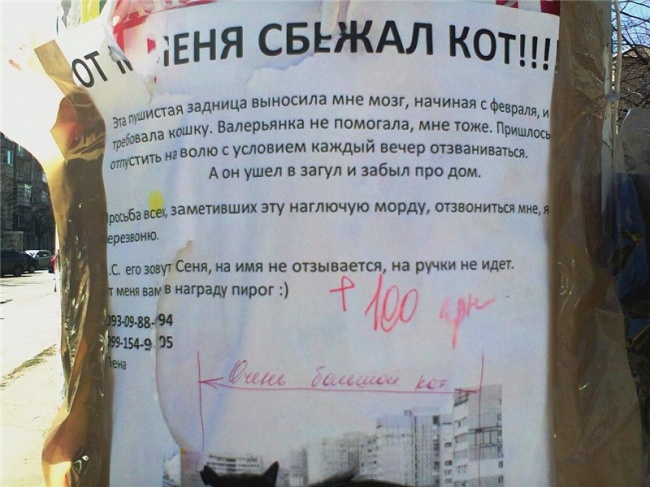 ОТ МЕНЯ СБЕЖАЛ КОТ!!!!
Эта пушистая задница выносила мне мозг, начиная с февраля, и
требовала кошку. Валерьянка не помогала, мне тоже. Пришлось
отпустить на волю с условием каждый вечер отзваниваться.
А он ушел в загул и забыл про дом.
росьба всех, заметивших эту наглючую морду, отзвониться мне, я
ерезвоню.
.С. его зовут Сеня, на имя не отзывается, на ручки не идет.
т меня вам в награду пирог :)
+ 100 грн
093-09-88- 94
099-154-9 05
ена
Очень большой кот